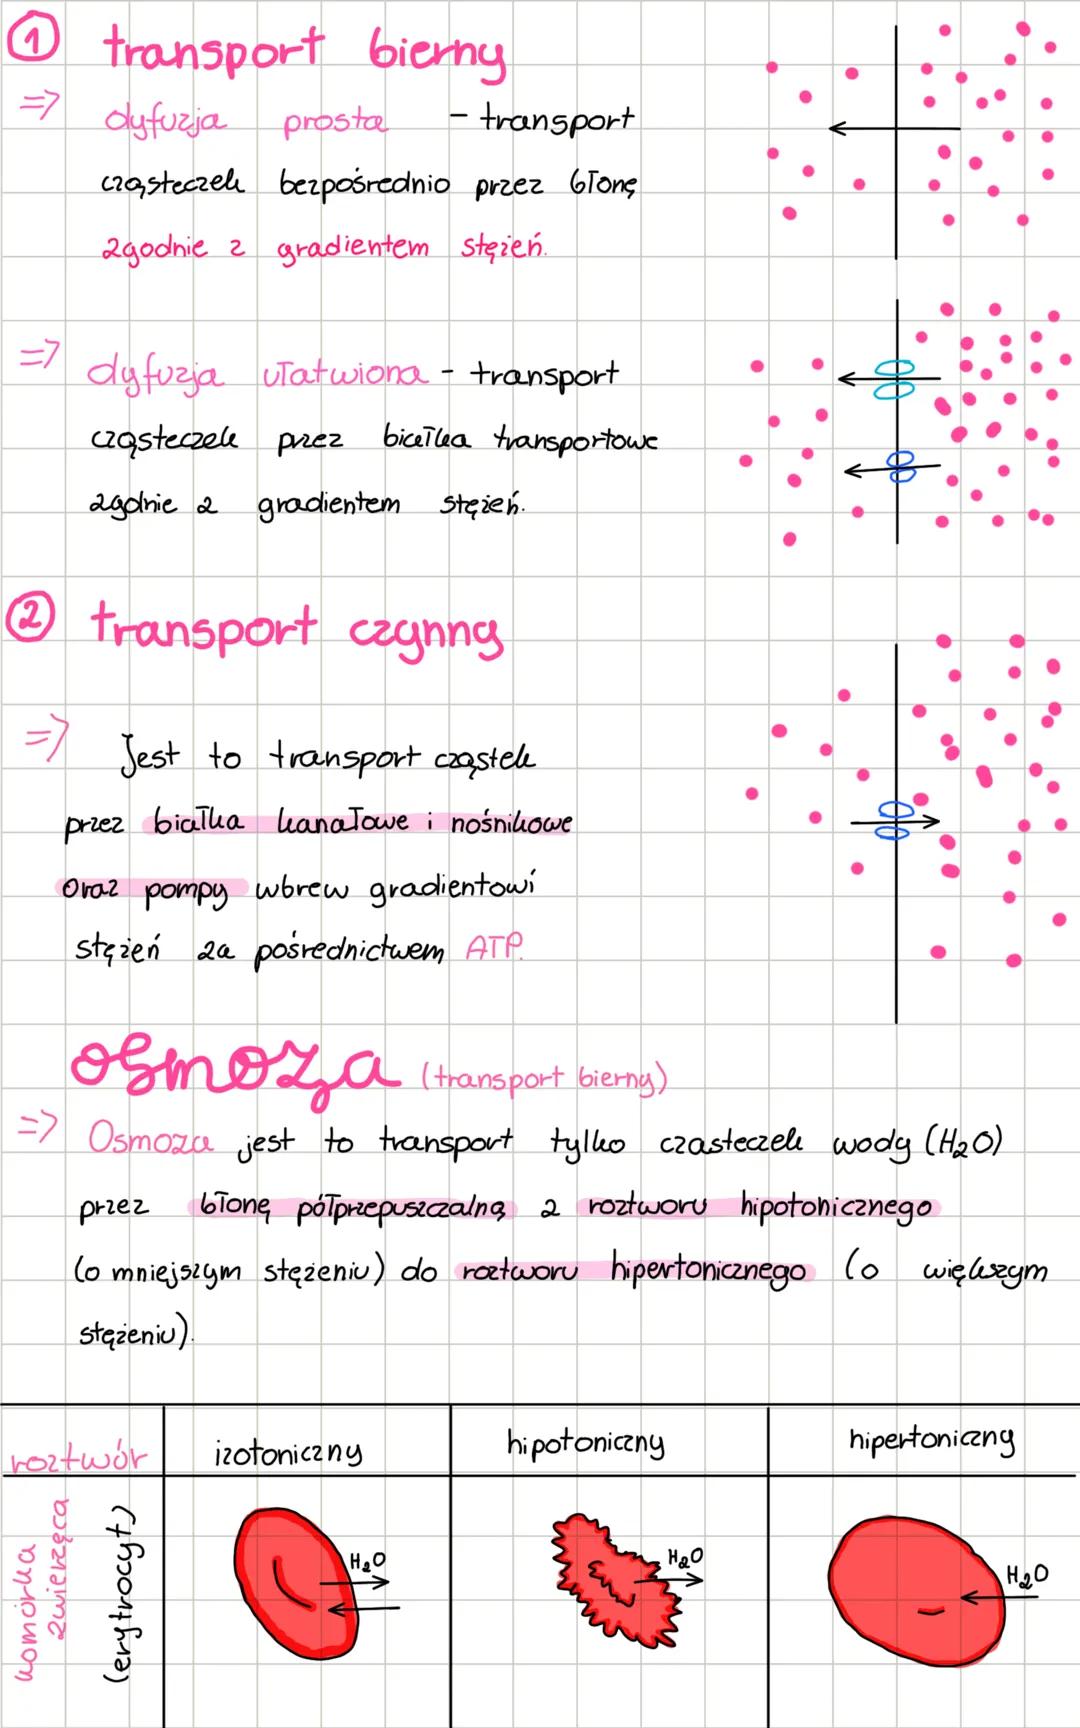 1 transport bierny
=> dyfuzja prosta - transport
cząsteczek bezpośrednio przez błonę
zgodnie z gradientem stężeń.
=> dyfuzja ułatwiona - transport
cząsteczek przez białka transportowe
zgdnie z gradientem stężeń.
2 transport czynny
=> Jest to transport cząstek
przez białka kanałowe i nośnikowe
oraz pompy wbrew gradientowi
stężeń za pośrednictwem ATP.
osmoza (transport bierny)
=> Osmoza jest to transport tylko czasteczek wody (H2O)
przez błonę półprzepuszczalną z roztworu hipotonicznego
(o mniejszym stężeniu) do roztworu hipertonicznego (o większym
stężeniu).
roztwór izotoniczny hipotoniczny hipertoniczny
komórka
zwierzęca
(erytrocyt)
H2O
H2O
H2O